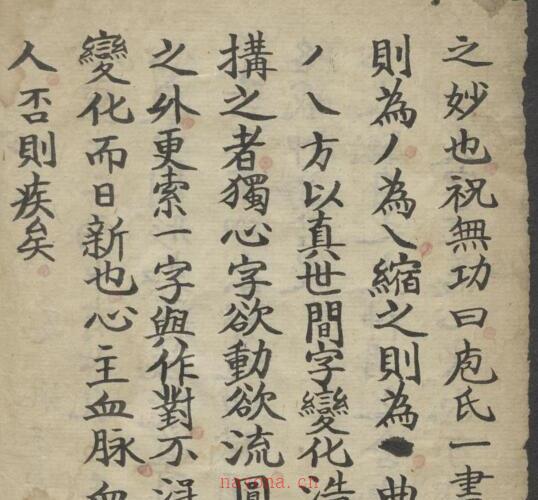 之妙也祝無功曰庖氏一畫
則為丿為乀縮之則為丶曲
丿乀方以真世間字變化浩
搆之者獨心字欲動欲流圓
之外更索一字與作對不得
變化而日新也心主血脉血
人否則疾矣
nayona.cn